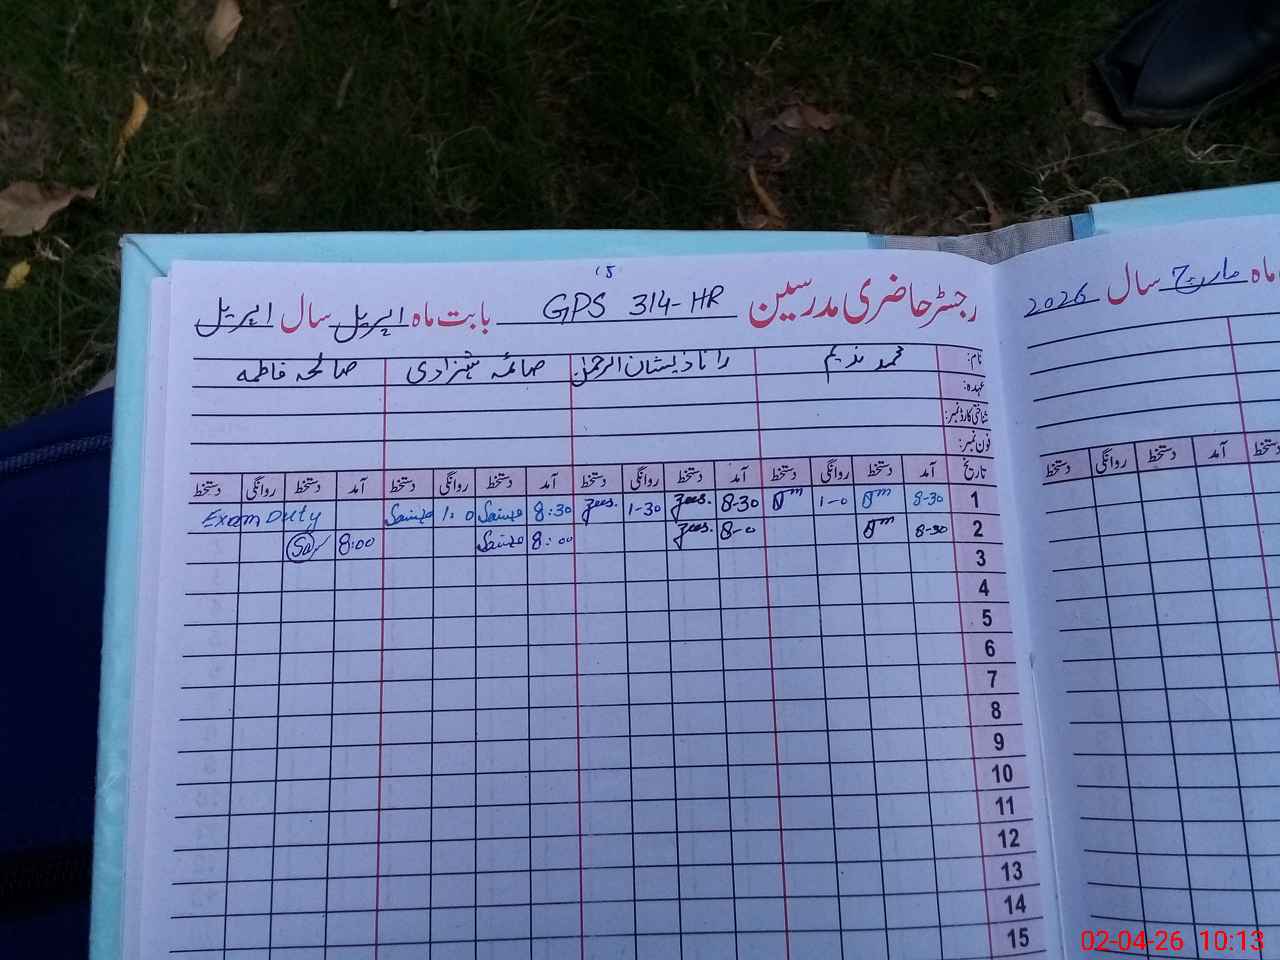 رجسٹر حاضری مدرسین GPS 314-HR بابت ماہ اپریل سال اپریل
نام: محمد ندیم رانا ذیشان الرحمٰن صائمہ شہزادی صالحہ فاطمہ
عہدہ:
شناختی کارڈ نمبر:
فون نمبر:
تاریخ آمد دستخط روانگی دستخط آمد دستخط روانگی دستخط آمد دستخط روانگی دستخط آمد دستخط روانگی دستخط
1 8-30 1-0 8-30 1-30 8:30 Saima 1:0 Saima Exam Duty
2 8-30 8-0 8:00 Saima 8:00
3
4
5
6
7
8
9
10
11
12
13
14
15
ماہ مارچ سال 2026
آمد دستخط روانگی دستخط
02-04-26 10:13